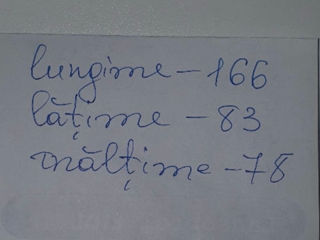 lungime – 166
lățime – 83
înălțime – 78